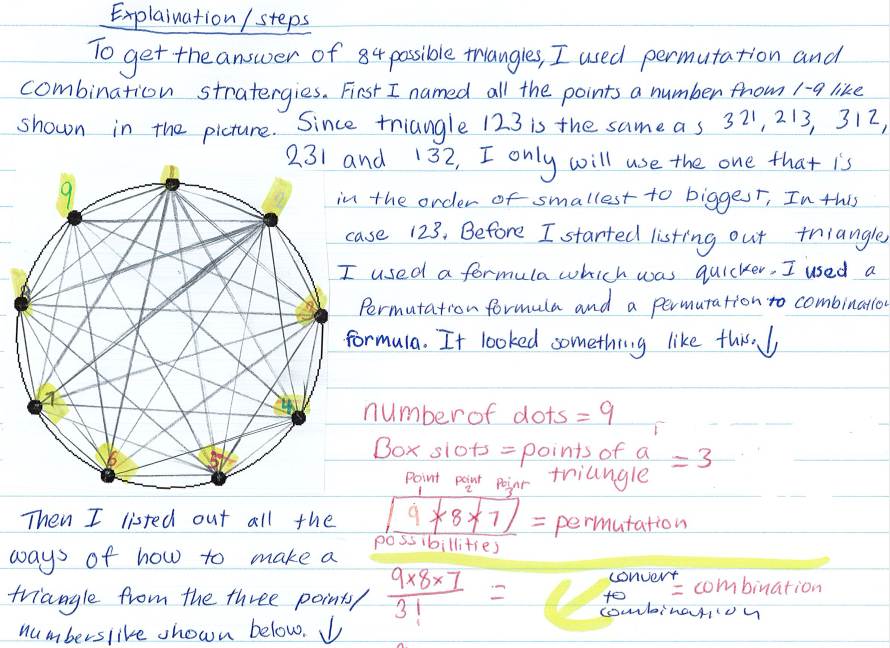 Explaination/steps
To get the answer of 84 possible triangles, I used permutation and
combination stratergies. First I named all the points a number from 1-9 like
shown in the picture. Since triangle 123 is the same as 321, 213, 312,
231 and 132, I only will use the one that is
in the order of smallest to biggest, In this
case 123. Before I started listing out triangles
I used a formula which was quicker. I used a
Permutation formula and a permutation to combination
formula. It looked something like this. ↓
1
2
9
8
3
7
4
6
5
number of dots = 9
Box slots = points of a triangle = 3
Point 1 point 2 Point 3
9 × 8 × 7 = permutation
possibillities
9×8×7 / 3! = convert to combination = combination
Then I listed out all the
ways of how to make a
triangle from the three points/
numbers like shown below. ↓